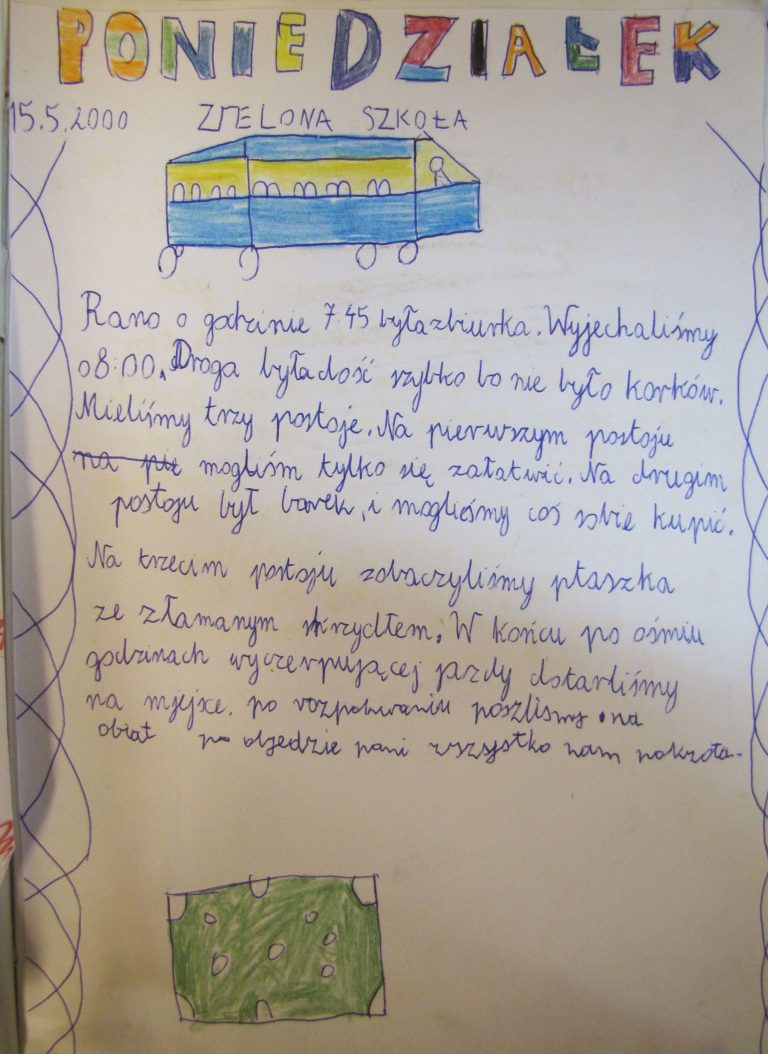 PONIEDZIAŁEK
15.5.2000 ZIELONA SZKOŁA
Rano o godzinie 7.45 byłazbiurka. Wyjechaliśmy
o8:00. Droga byładość szybko bo nie było korków.
Mieliśmy trzy postoje. Na pierwszym postoju
na pie mogliśm tylko się załatwić. Na drugim
postoju był barek, i mogliośmy coś sobie kupić.
Na trzecim postoju zobaczyliśmy ptaszka
ze złamanym skrzydłem. W końcu po ośmiu
godzinach wyczerpującej jazdy dotarliśmy
na miejxe. po rozpakuwaniu poszliśmy na
obiat po objedzie pani wszystko nam